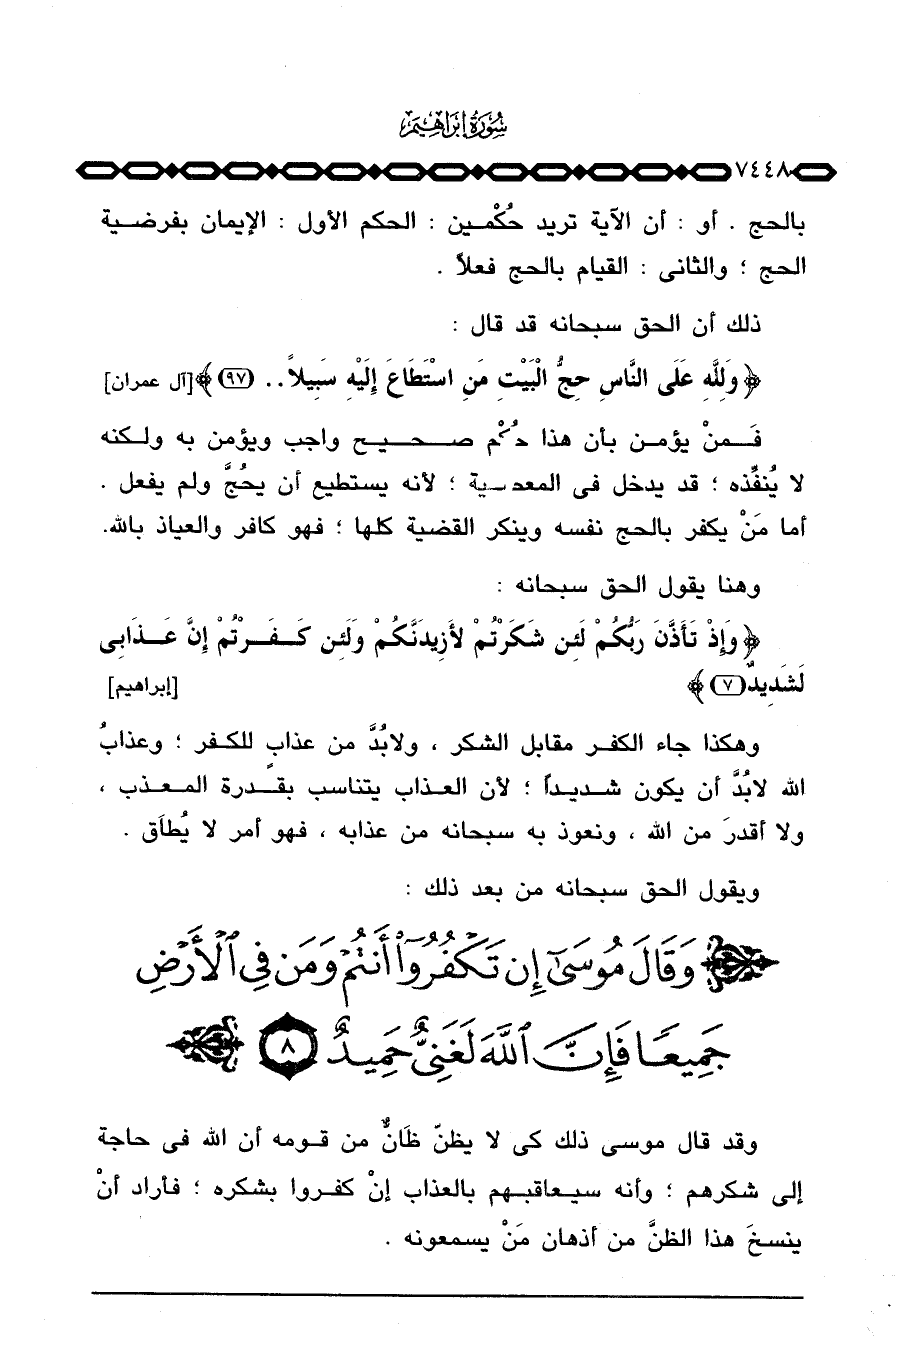 سُورَةُ إِبْرَاهِيم
٧٤٤٨
بالحج . أو : أن الآية تريد حُكْمين : الحكم الأول : الإيمان بفرضية
الحج ؛ والثانى : القيام بالحج فعلاً .
ذلك أن الحق سبحانه قد قال :
﴿ وَلِلَّهِ عَلَى النَّاسِ حِجُّ الْبَيْتِ مَنِ اسْتَطَاعَ إِلَيْهِ سَبِيلاً .. (٩٧) ﴾ [آل عمران]
فَمنْ يؤمن بأن هذا حُكْم صحيح واجب ويؤمن به ولكنه
لا يُنفِّذه ؛ قد يدخل فى المعصية ؛ لأنه يستطيع أن يحُجَّ ولم يفعل .
أما مَنْ يكفر بالحج نفسه وينكر القضية كلها ؛ فهو كافر والعياذ بالله.
وهنا يقول الحق سبحانه :
﴿ وَإِذْ تَأَذَّنَ رَبُّكُمْ لَئِن شَكَرْتُمْ لأَزِيدَنَّكُمْ وَلَئِن كَفَرْتُمْ إِنَّ عَذَابِى
لَشَدِيدٌ (٧) ﴾ [إبراهيم]
وهكذا جاء الكفر مقابل الشكر ، ولابُدَّ من عذابٍ للكفر ؛ وعذابُ
الله لابُدَّ أن يكون شديداً ؛ لأن العذاب يتناسب بقدرة المعذب ،
ولا أقدرَ من الله ، ونعوذ به سبحانه من عذابه ، فهو أمر لا يُطاَق .
ويقول الحق سبحانه من بعد ذلك :
وَقَالَ مُوسَىٰٓ إِن تَكْفُرُوٓا۟ أَنتُمْ وَمَن فِى ٱلْأَرْضِ
جَمِيعًا فَإِنَّ ٱللَّهَ لَغَنِىٌّ حَمِيدٌ ٨
وقد قال موسى ذلك كى لا يظنّ ظَانٌّ من قومه أن الله فى حاجة
إلى شكرهم ؛ وأنه سيعاقبهم بالعذاب إنْ كفروا بشكره ؛ فأراد أنْ
ينسخَ هذا الظنَّ من أذهان مَنْ يسمعونه .